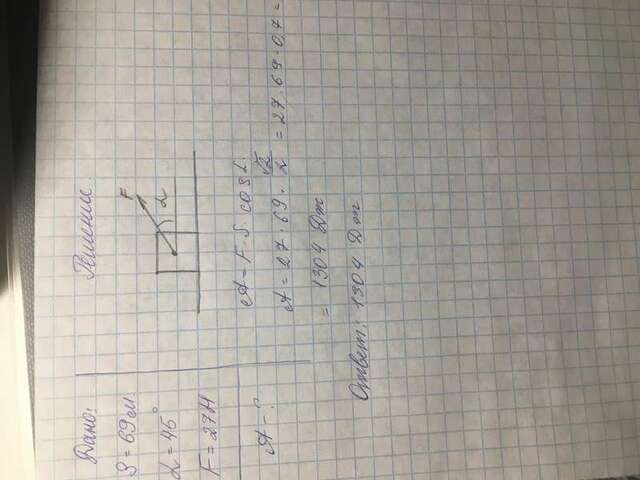 Дано:
S = 69 м.
α = 45°
F = 27 Н
A - ?
Решение
F
α
A = F · S · cos α.
A = 27 · 69 · √2/2 = 27 · 69 · 0,7 =
= 1304 Дж
Ответ: 1304 Дж